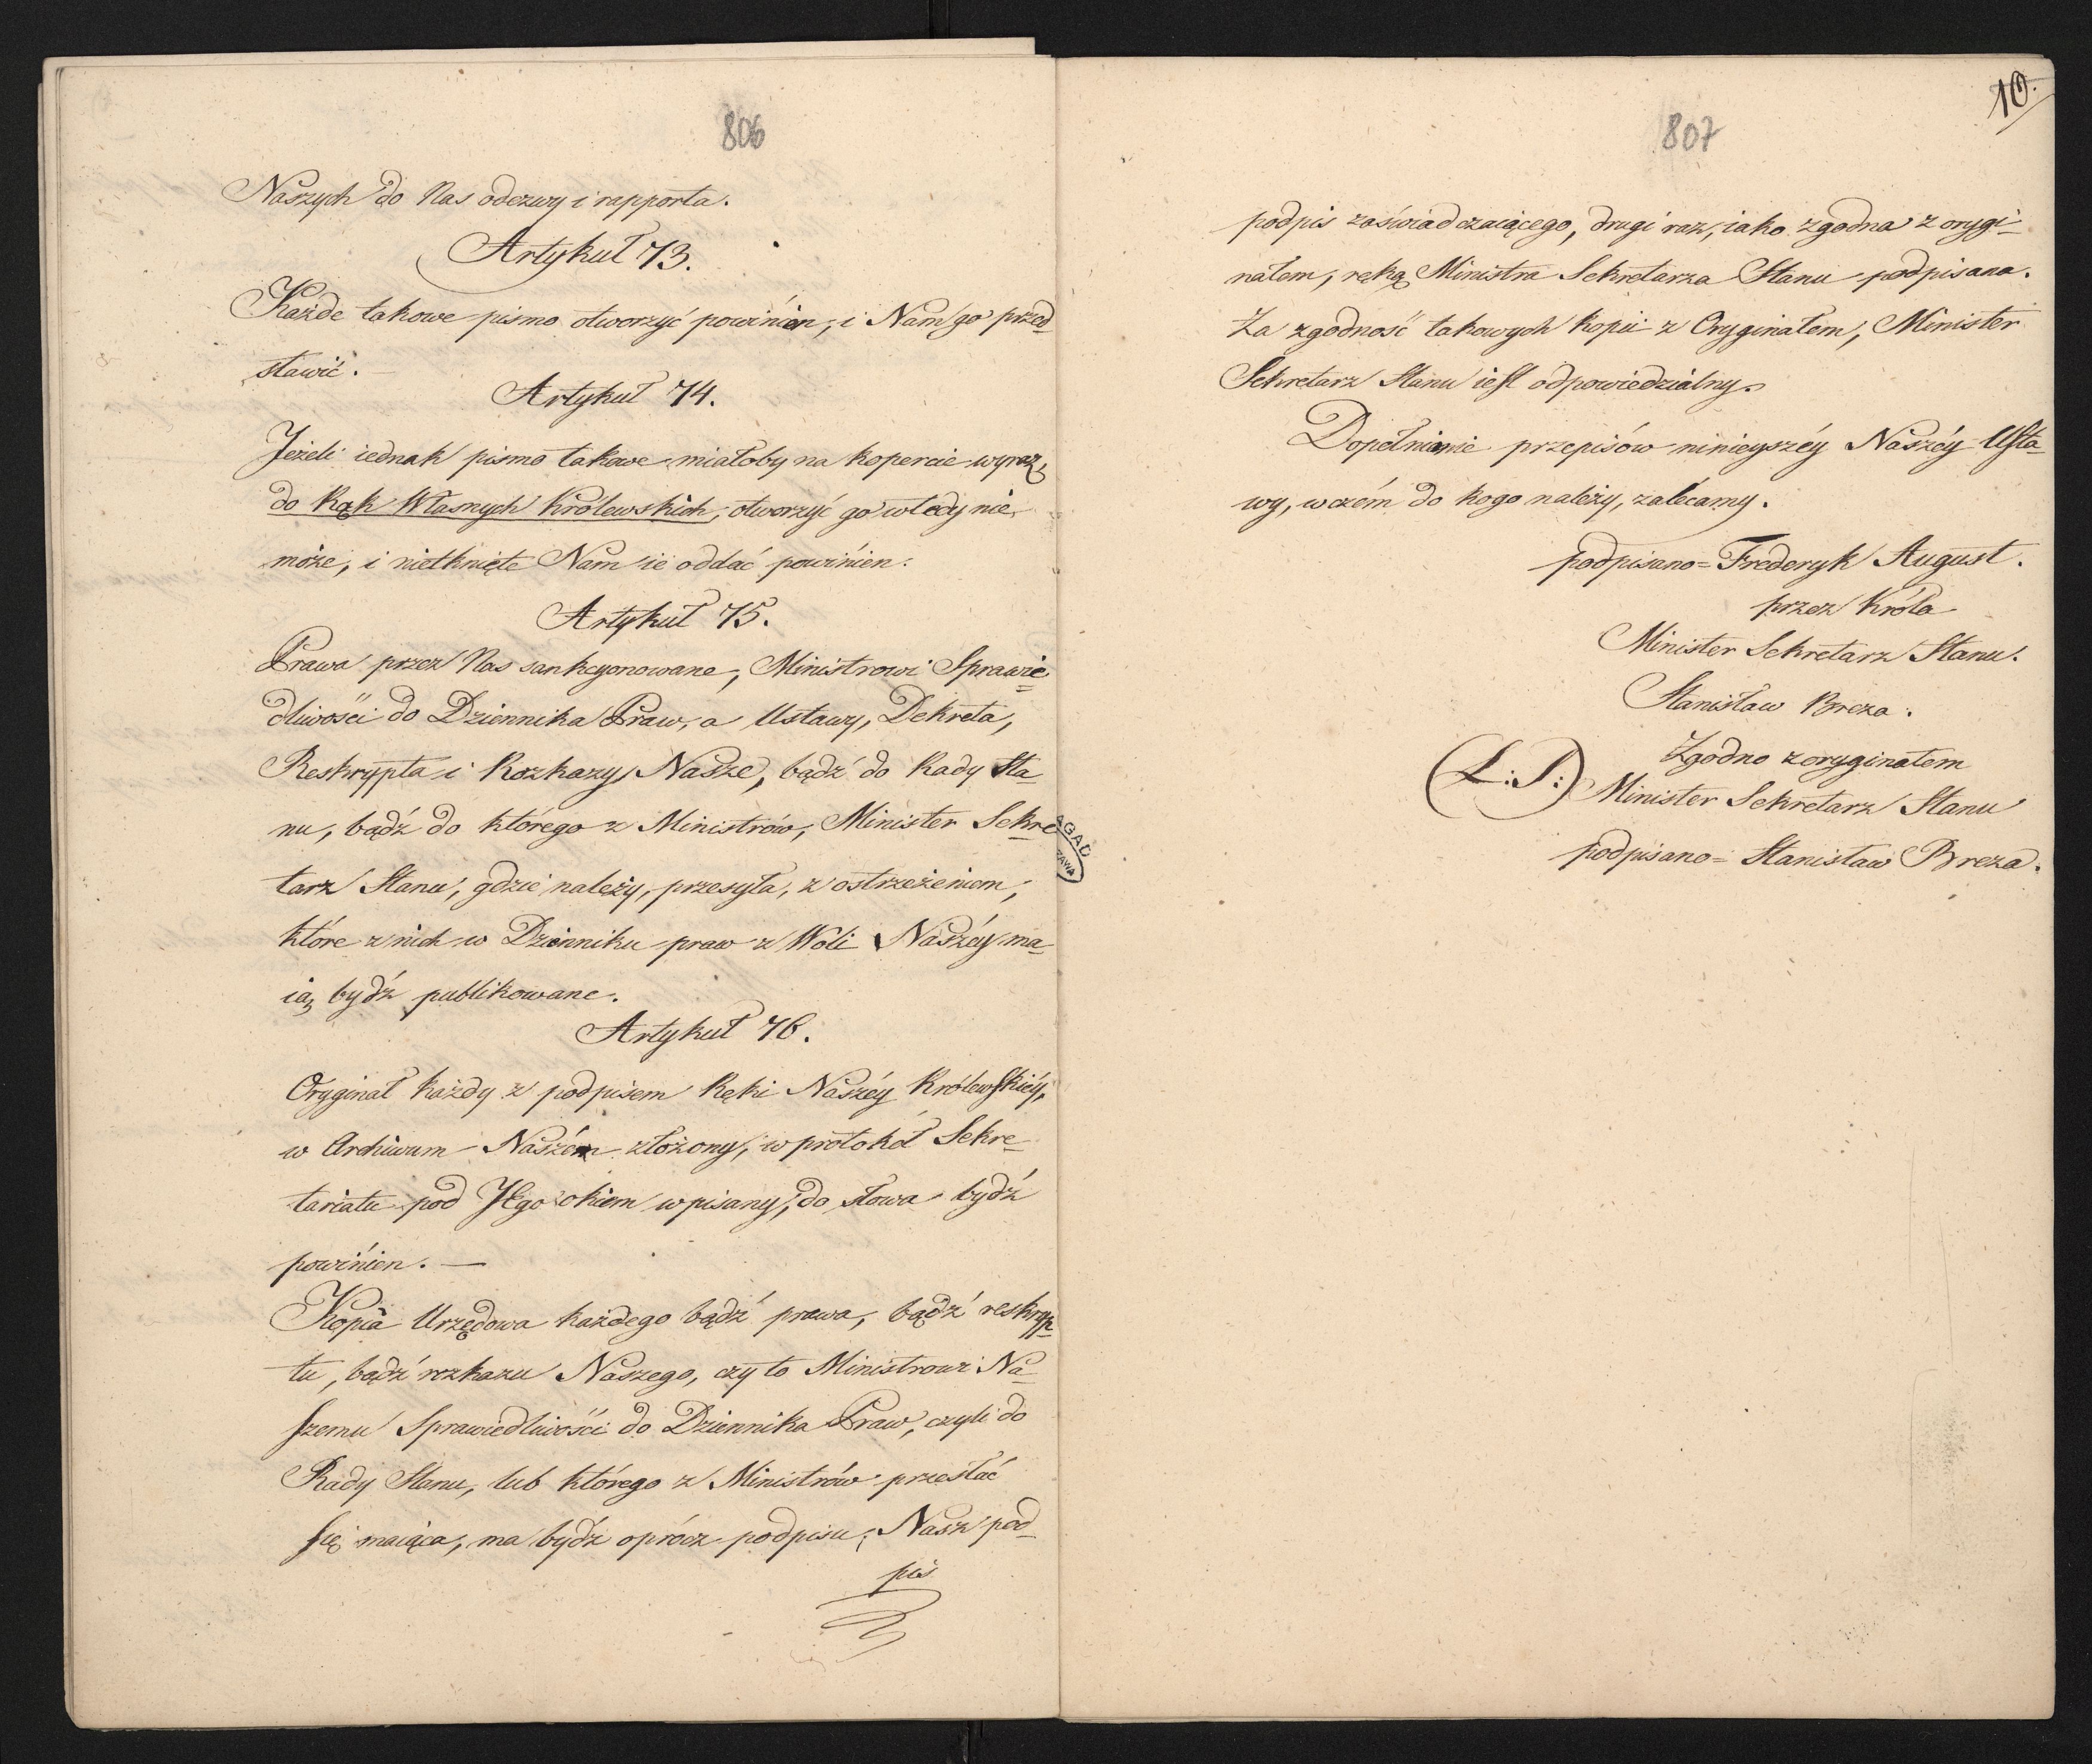 806
Naszych do Nas odezwy i rapporta.
Artykuł 73.
Każde takowe pismo otworzyć powinien, i Nam go przed-
stawić. —
Artykuł 74.
Jeżeli iednak pismo takowe miałoby na kopercie wyraz,
do Rąk Własnych Królewskich, otworzyć go wtedy nie
może, i nietknięte Nam ie oddać powinien.
Artykuł 75.
Prawa przez Nas sankcyonowane, Ministrowi Sprawie=
dliwości do Dziennika Praw, a Ustawy, Dekreta,
Reskrypta i Rozkazy Nasze, bądź do Rady Sta-
nu, bądź do którego z Ministrów, Minister Sekre-
tarz Stanu, gdzie należy, przesyła, z ostrzeżeniem,
które z nich w Dzienniku praw z Woli Naszéy ma-
ią bydź publikowane.
Artykuł 76.
Oryginał każdy z podpisem Ręki Naszéy Królewskiéy,
w Archiwum Naszém złożony, w protokół Sekre-
tariatu pod JEgo okiem wpisany, do słowa bydź
powinien. —
Kopia Urzędowa każdego bądź prawa, bądź reskryp-
tu, bądź rozkazu Naszego, czy to Ministrowi Na-
szemu Sprawiedliwości do Dziennika Praw, czyli do
Rady Stanu, lub którego z Ministrów przesłać
się maiąca, ma bydź oprócz podpisu, Nasz pod-
pis
10.
807
podpis zaświadczaiącego, drugi raz, iako zgodna z orygi-
nałem, ręką Ministra Sekretarza Stanu podpisana.
Za zgodność takowych kopii z Oryginałem, Minister
Sekretarz Stanu iest odpowiedzialny.
Dopełnienie przepisów ninieyszéy Naszéy Usta-
wy, wczém do kogo należy, zalécamy.
podpisano = Frederyk August.
przez Króla
Minister Sekretarz Stanu.
Stanisław Breza.
Zgodno z oryginałem
(L:S:) Minister Sekretarz Stanu
podpisano = Stanisław Breza.
AGAD